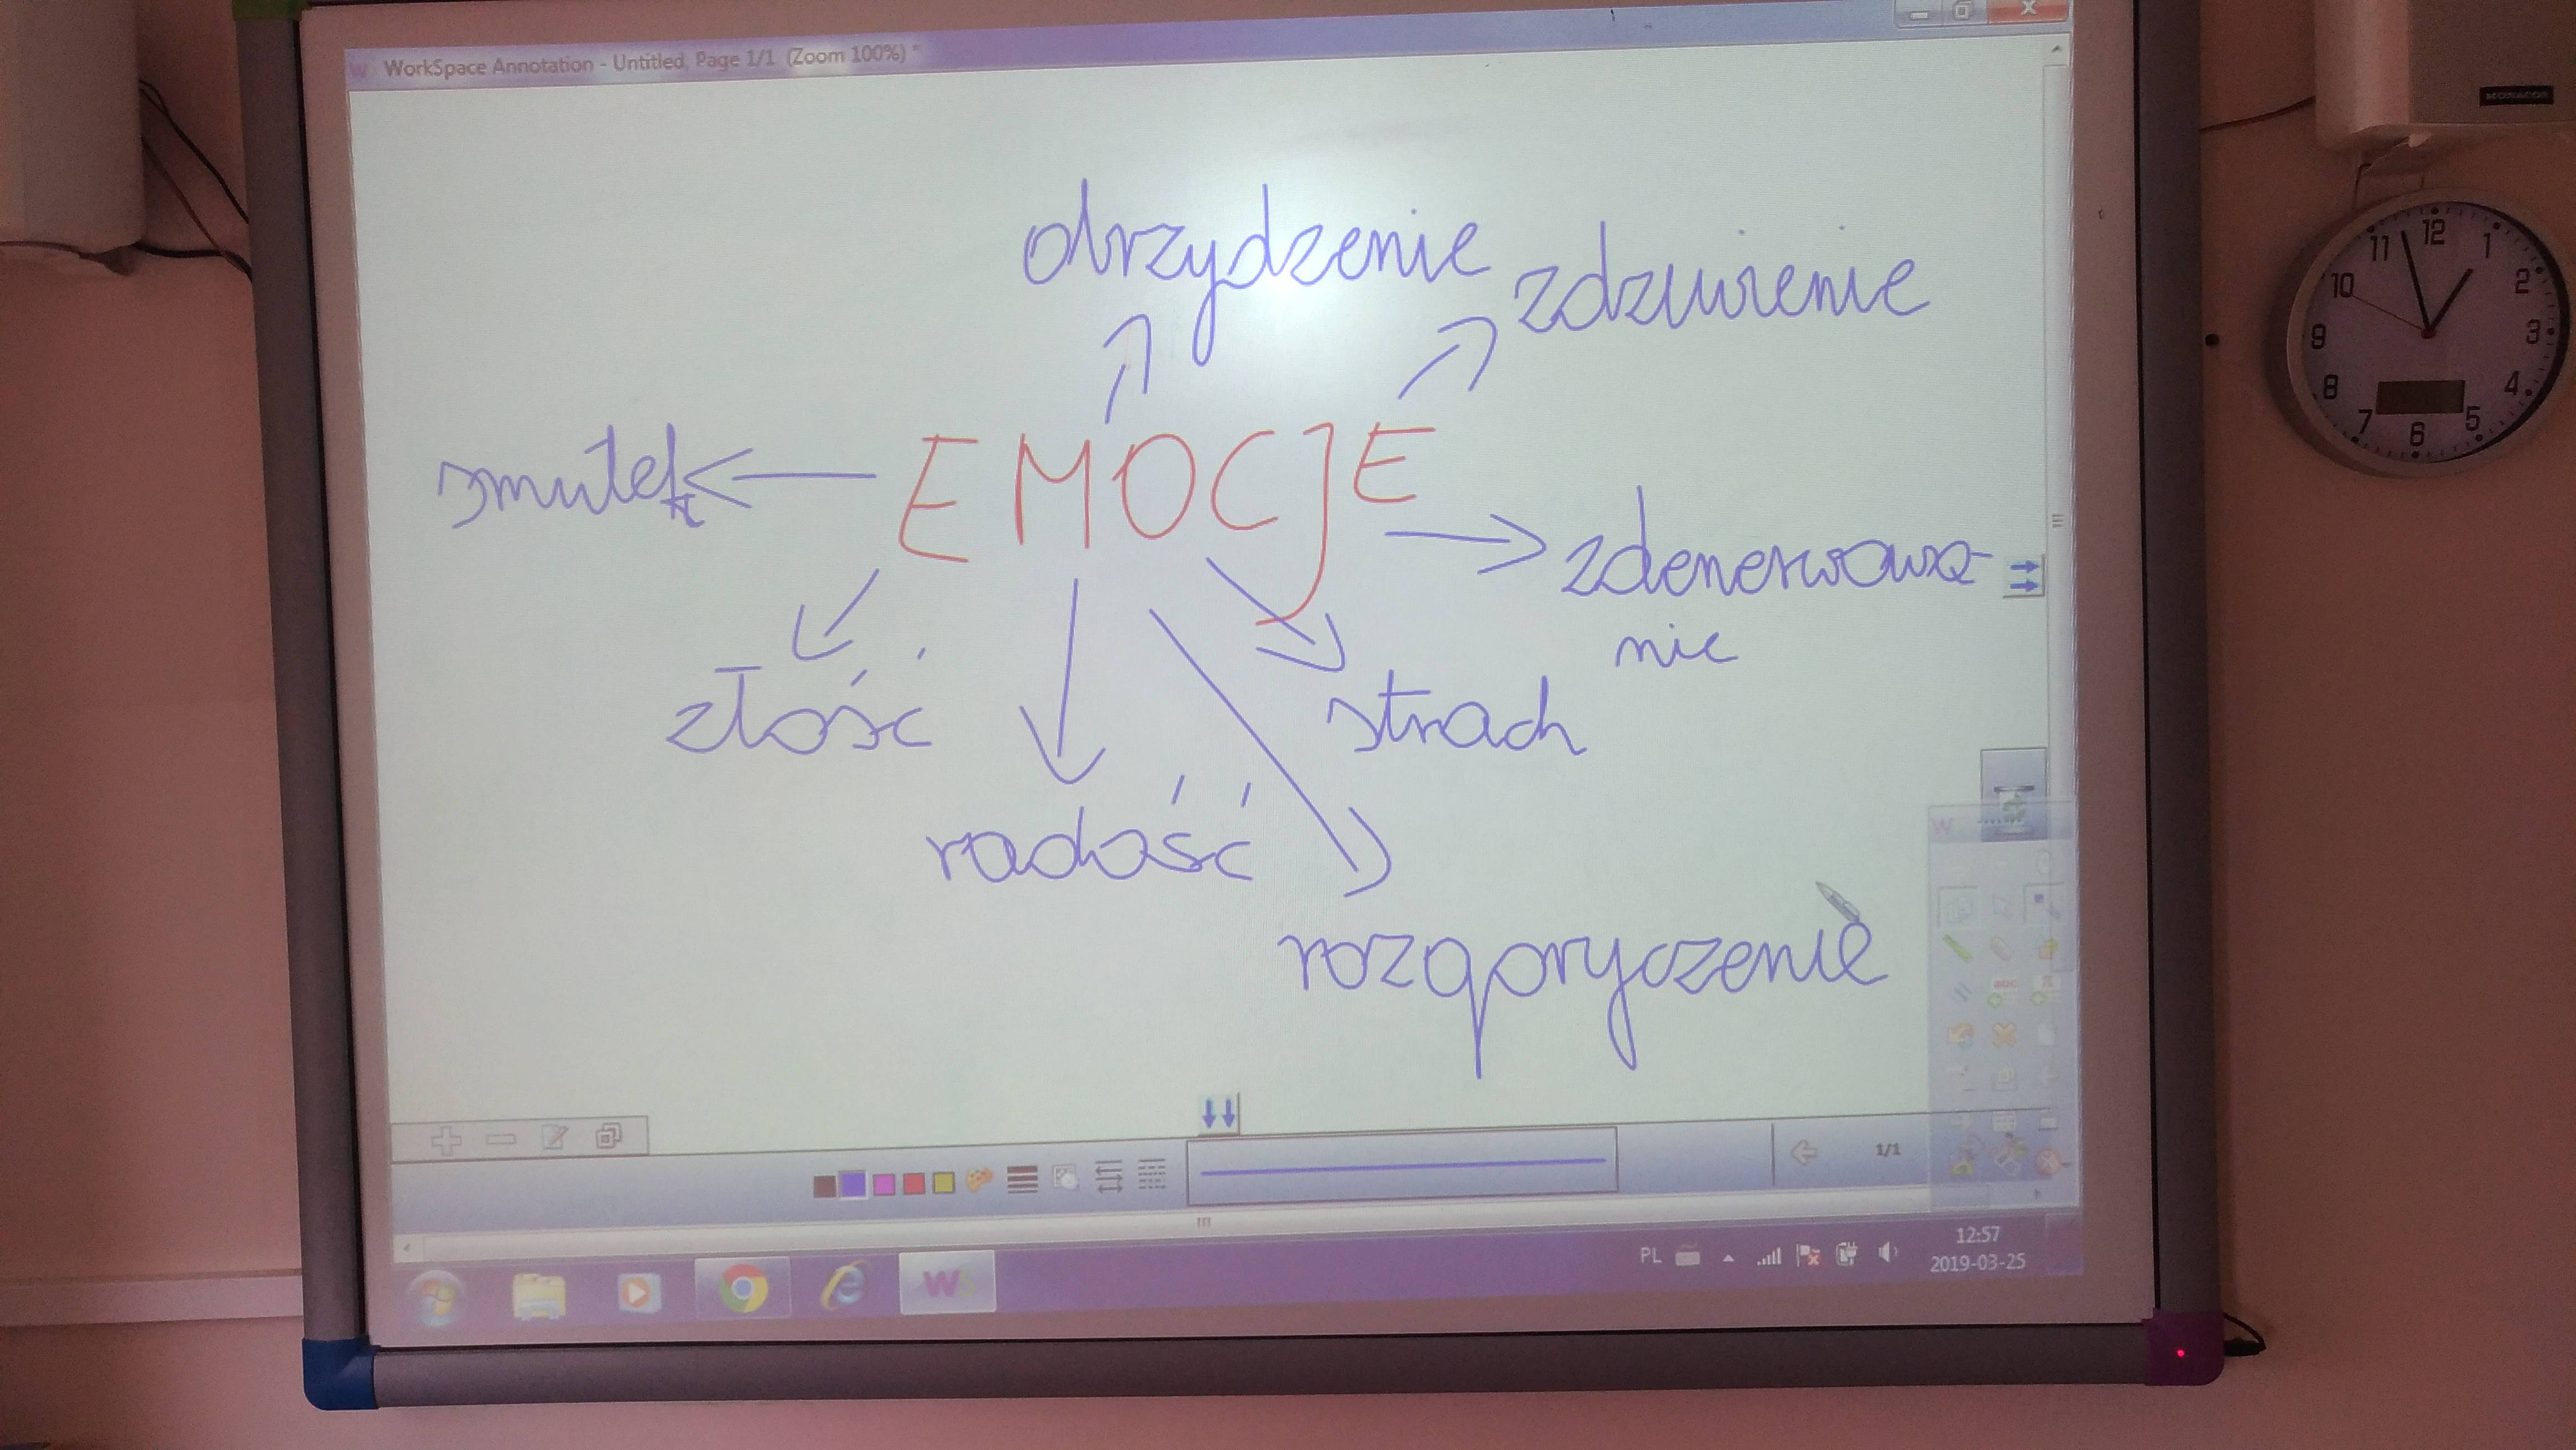 WorkSpace Annotation - Untitled, Page 1/1 (Zoom 100%) *
MONACOR
obrzydzenie
zdziwienie
EMOCJE
smutek
zdenerwowa-
nie
złość
strach
radość
rozgoryczenie
12
1
2
3
4
5
6
7
8
9
10
11
W
1/1
PL
12:57
2019-03-25